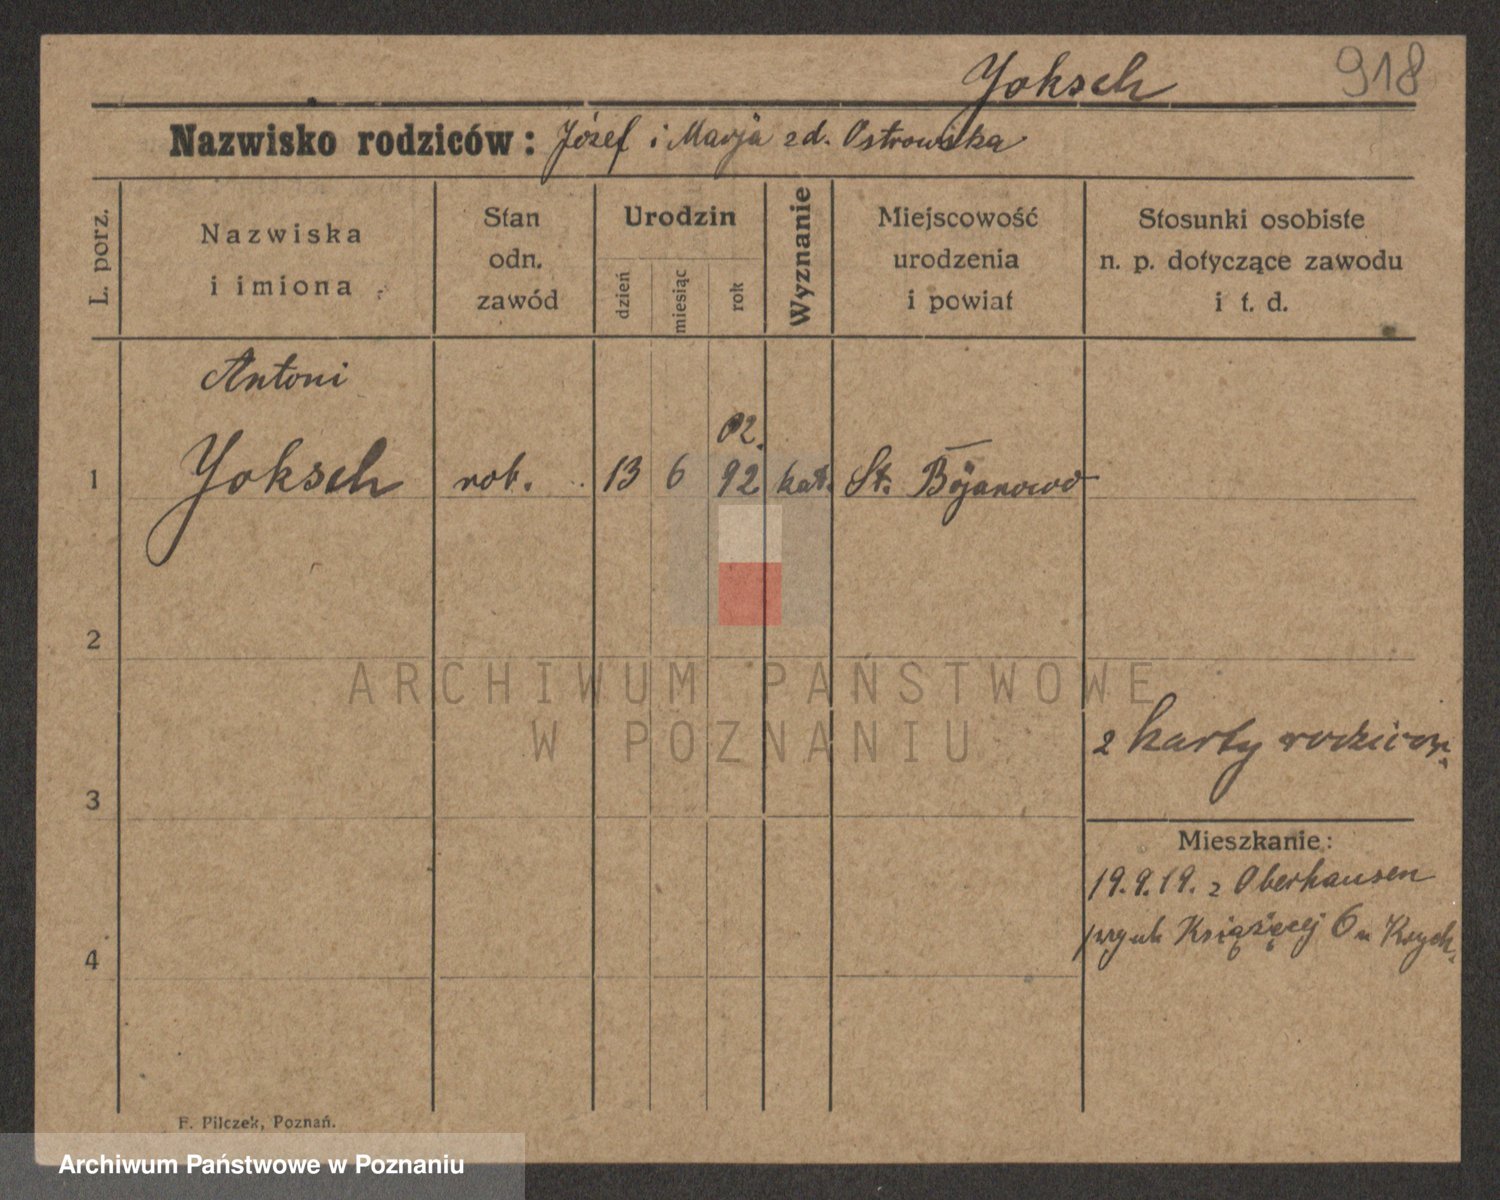 Yoksch 918
Nazwisko rodziców: Józef i Marja zd. Ostrowska
L. porz.
Nazwiska
i imiona
Stan
odn.
zawód
Urodzin
dzień
miesiąc
rok
Wyznanie
Miejscowość
urodzenia
i powiat
Stosunki osobiste
n. p. dotyczące zawodu
i t. d.
Antoni
02.
1 Yoksch rob. 13 6 92 kat. St. Bojanowo
2
ARCHIWUM PAŃSTWOWE
W POZNANIU
z karty rodzicow.
3
Mieszkanie:
19.9.19. z Oberhausen
Książęcej 6 u
4
F. Pilczek, Poznań.
Archiwum Państwowe w Poznaniu